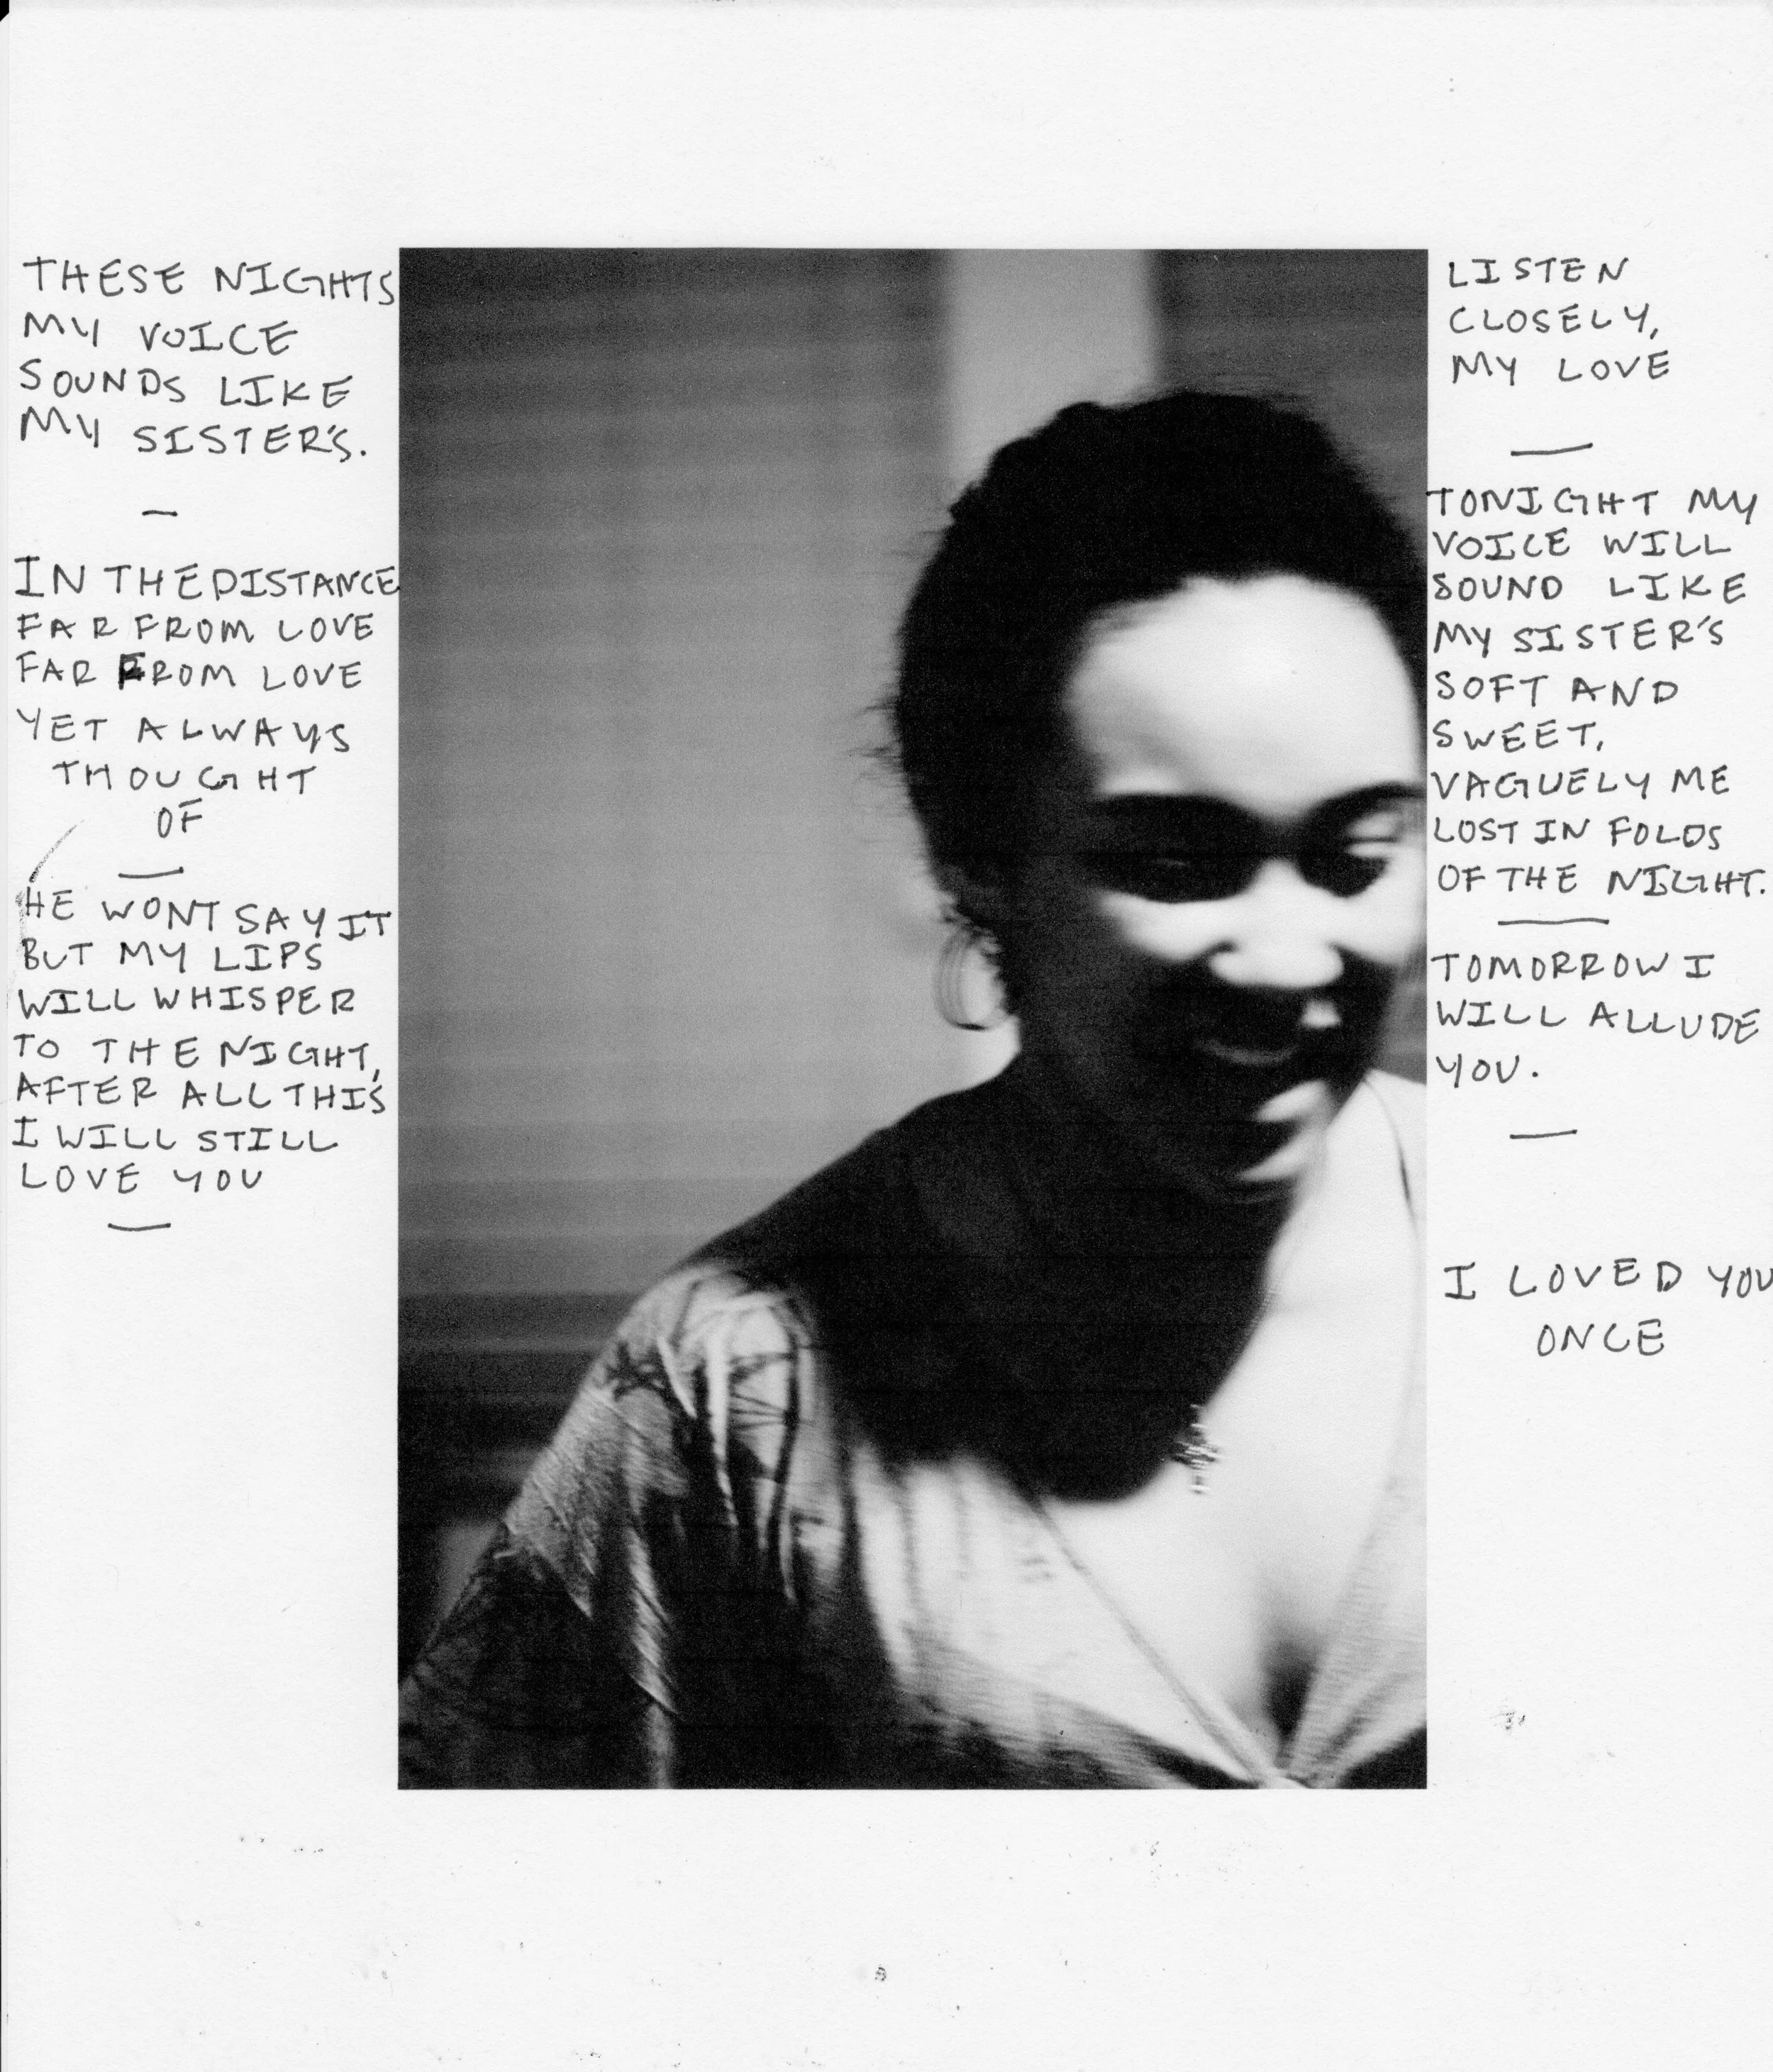 THESE NIGHTS
MY VOICE
SOUNDS LIKE
MY SISTER'S.
—
IN THE DISTANCE
FAR FROM LOVE
FAR FROM LOVE
YET ALWAYS
THOUGHT
OF
—
HE WONT SAY IT
BUT MY LIPS
WILL WHISPER
TO THE NIGHT,
AFTER ALL THIS
I WILL STILL
LOVE YOU
—
LISTEN
CLOSELY,
MY LOVE
—
TONIGHT MY
VOICE WILL
SOUND LIKE
MY SISTER'S
SOFT AND
SWEET,
VAGUELY ME
LOST IN FOLDS
OF THE NIGHT.
—
TOMORROW I
WILL ALLUDE
YOU.
—
I LOVED YOU
ONCE